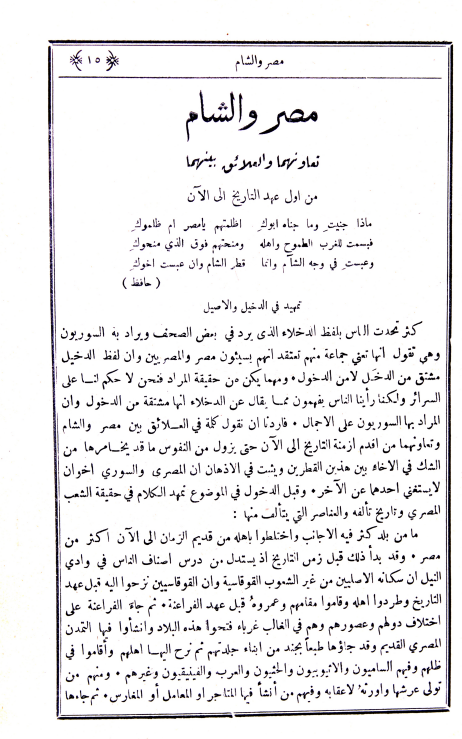 مصر والشام
١٥
مصر والشام
تعاونهما والعلائق بينهما
من اول عهد التاريخ الى الآن
ماذا جنيتِ وما جناه ابوكِ اظلمتهم يامصر ام ظلموكِ
فبسمت للغرب الطموح واهله ومنحتهم فوق الذي منحوكِ
وعبستِ في وجه الشآم وانما قطر الشام وان عبست اخوكِ
( حافظ )
تمهيد في الدخيل والاصيل
كثر تحدت الناس بلفظ الدخلاء الذى يرد في بعض الصحف ويراد به السوريون
وهي تقول انها تعني جماعة منهم تعتقد انهم يسيئون مصر والمصريين وان لفظ الدخيل
مشتق من الدخَل لامن الدخول ٠ ومهما يكن من حقيقة المراد فنحن لا حكم لنا على
السرائر ولكننا رأينا الناس يفهمون مما يقال عن الدخلاء انها مشتقة من الدخول وان
المراد بها السوريون على الاجمال ٠ فاردنا ان نقول كلمة في العلائق بين مصر والشام
وتعاونهما من اقدم ازمنة التاريخ الى الآن حتى يزول من النفوس ما قد يخامرها من
الشك في الاخاء بين هذين القطرين ويثبت في الاذهان ان المصرى والسوري اخوان
لايستغني احدهما عن الآخر ٠ وقبل الدخول في الموضوع نمهد الكلام في حقيقة الشعب
المصري وتاريخ تألفه والعناصر التي يتألف منها :
ما من بلد كثر فيه الاجانب واختلطوا باهله من قديم الزمان الى الآن اكثر من
مصر ٠ وقد بدأ ذلك قبل زمن التاريخ اذ يستدل من درس اصناف الناس في وادي
النيل ان سكانه الاصليين من غير الشعوب القوقاسية وان القوقاسيين نزحوا اليه قبل عهد
التاريخ وطردوا اهله وقاموا مقامهم وعمروهُ قبل عهد الفراعنة ٠ ثم جاء الفراعنة على
اختلاف دولهم وعصورهم وهم في الغالب غرباء فتحوا هذه البلاد وانشأوا فيها التمدن
المصري القديم وقد جاؤها طبعاً بجند من ابناء جلدتهم ثم نزح اليها اهلهم وأقاموا في
ظلهم وفيهم الساميون والاتيوبيون والحثيون والعرب والفينيقيون وغيرهم ٠ ومنهم من
تولى عرشها واورثهُ لاعقابه وفيهم من أنشأ فيها المتاجر او المعامل أو المغارس ٠ ثم جاءها